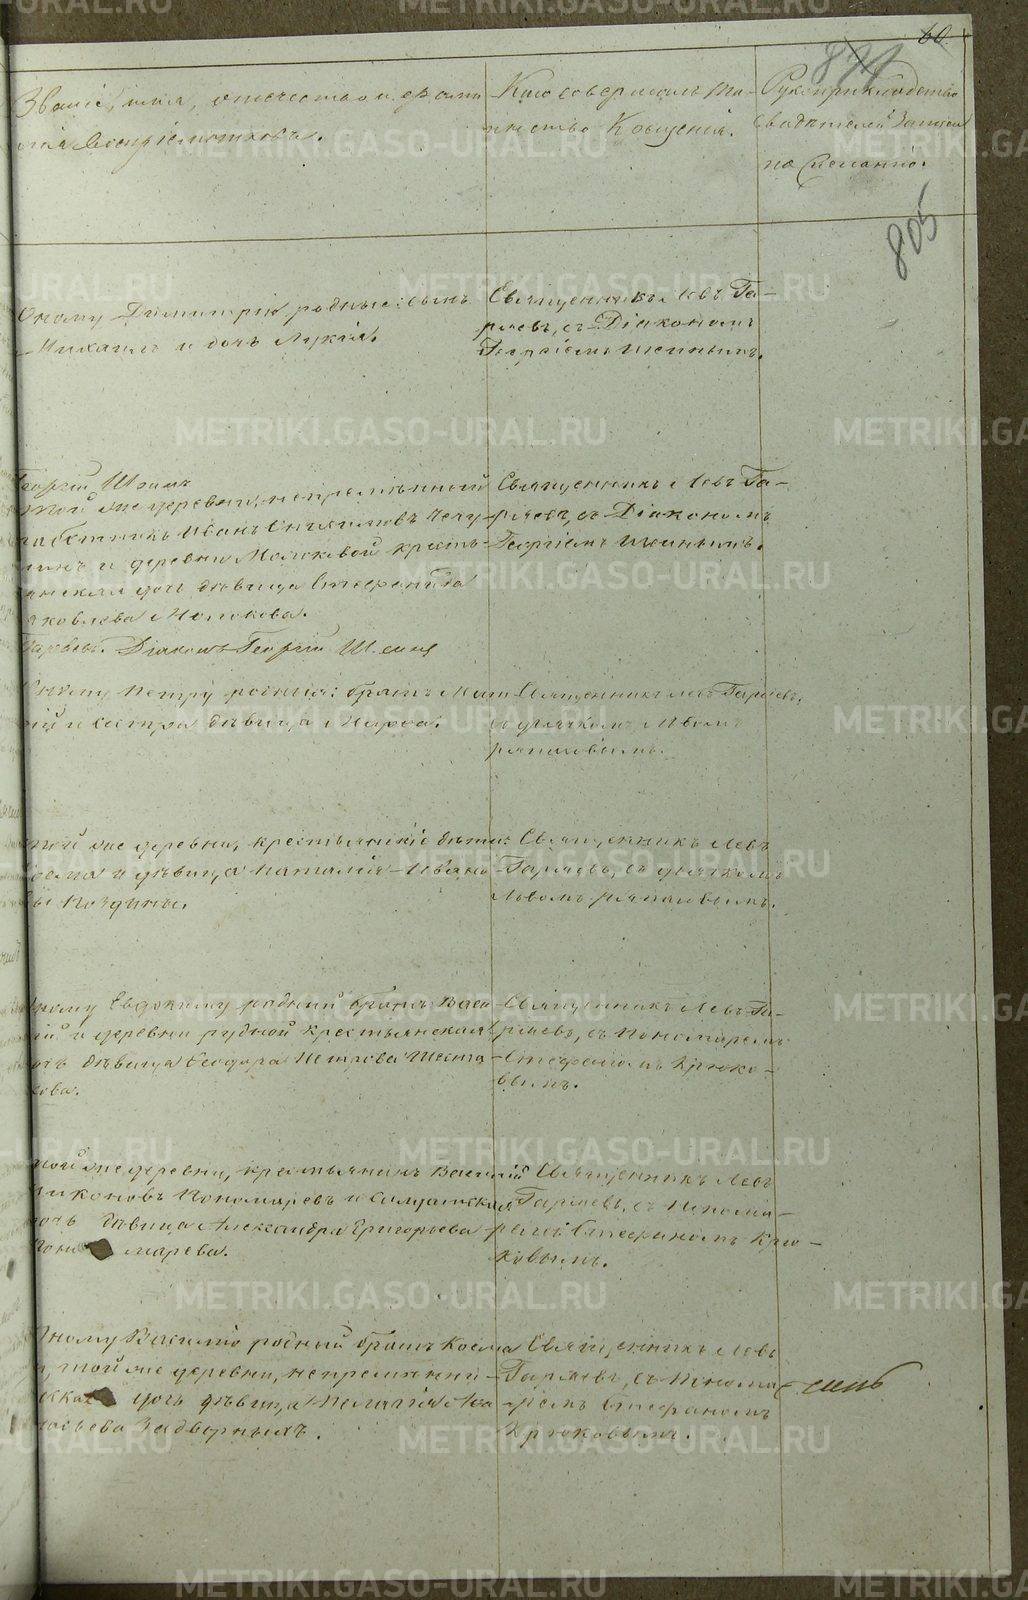 60
805
Званіе, имя, отчество и фами-
лія Воспріемниковъ.
Кто совершалъ та-
инство Крещенія.
Рукоприкладство
свидѣтелей записи
по желанію.
Оному Димитрію родные: сынъ
Михаилъ и дочь Лукія.
Священникъ Левъ Га-
ряевъ, съ Діакономъ
Георгіемъ Шеинымъ.
Георгій Шеинъ
той же деревни, непремѣнный
работникъ Иванъ
и деревни Молоковой кресть-
янская дочь дѣвица Стефанида
Яковлева Молокова.
Священникъ Левъ Га-
ряевъ, съ Діакономъ
Георгіемъ Шеинымъ.
Гаряевъ. Діаконъ Георгій Шеинъ
Оному Петру родныя: братъ
и сестра дѣвица Марѳа.
Священникъ Левъ Гаряевъ,
съ дьячкомъ Львомъ
той же деревни, крестьянскіе дѣти:
и дѣвица Наталія Ивано-
вы Поздины.
Священникъ Левъ
Гаряевъ, съ дьячкомъ
Львомъ
Оному Евдокиму родный братъ Васи-
лій и деревни Рудной крестьянская
дочь дѣвица Ѳеодора Петрова Шеста-
кова.
Священникъ Левъ Га-
ряевъ, съ Пономаремъ
Стефаномъ Крюко-
вымъ.
той же деревни, крестьянинъ Василій
Никоновъ Пономаревъ и солдатская
дочь дѣвица Александра Григорьева
Пономарева.
Священникъ Левъ
Гаряевъ, съ Понома-
ремъ Стефаномъ Крю-
ковымъ.
Оному Василію родный братъ Косма
и той же деревни, непремѣнни-
ческая дочь дѣвица Пелагія
Задворныхъ.
Священникъ Левъ
Гаряевъ, съ Понома-
ремъ Стефаномъ
Крюковымъ.
METRIKI.GASO-URAL.RU